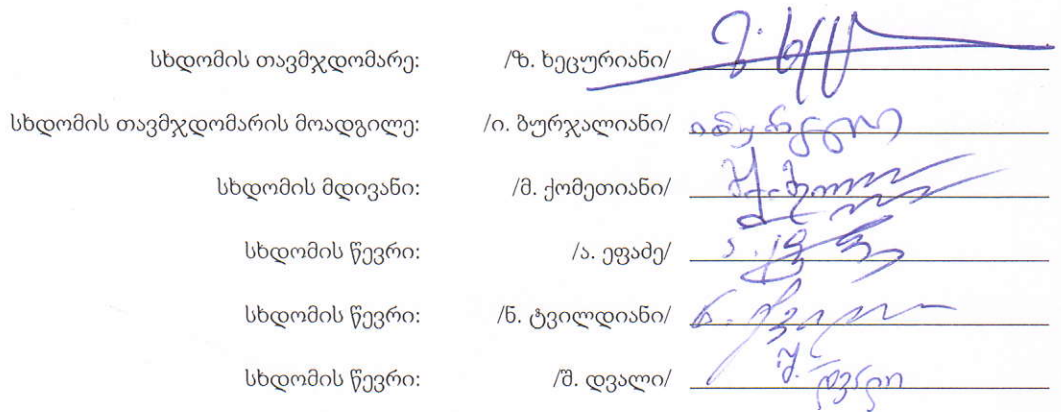 სხდომის თავმჯდომარე: /ზ. ხეცურიანი/
სხდომის თავმჯდომარის მოადგილე: /ი. ბურჯალიანი/
სხდომის მდივანი: /მ. ქომეთიანი/
სხდომის წევრი: /ა. ეფაძე/
სხდომის წევრი: /ნ. ტვილდიანი/
სხდომის წევრი: /შ. დვალი/